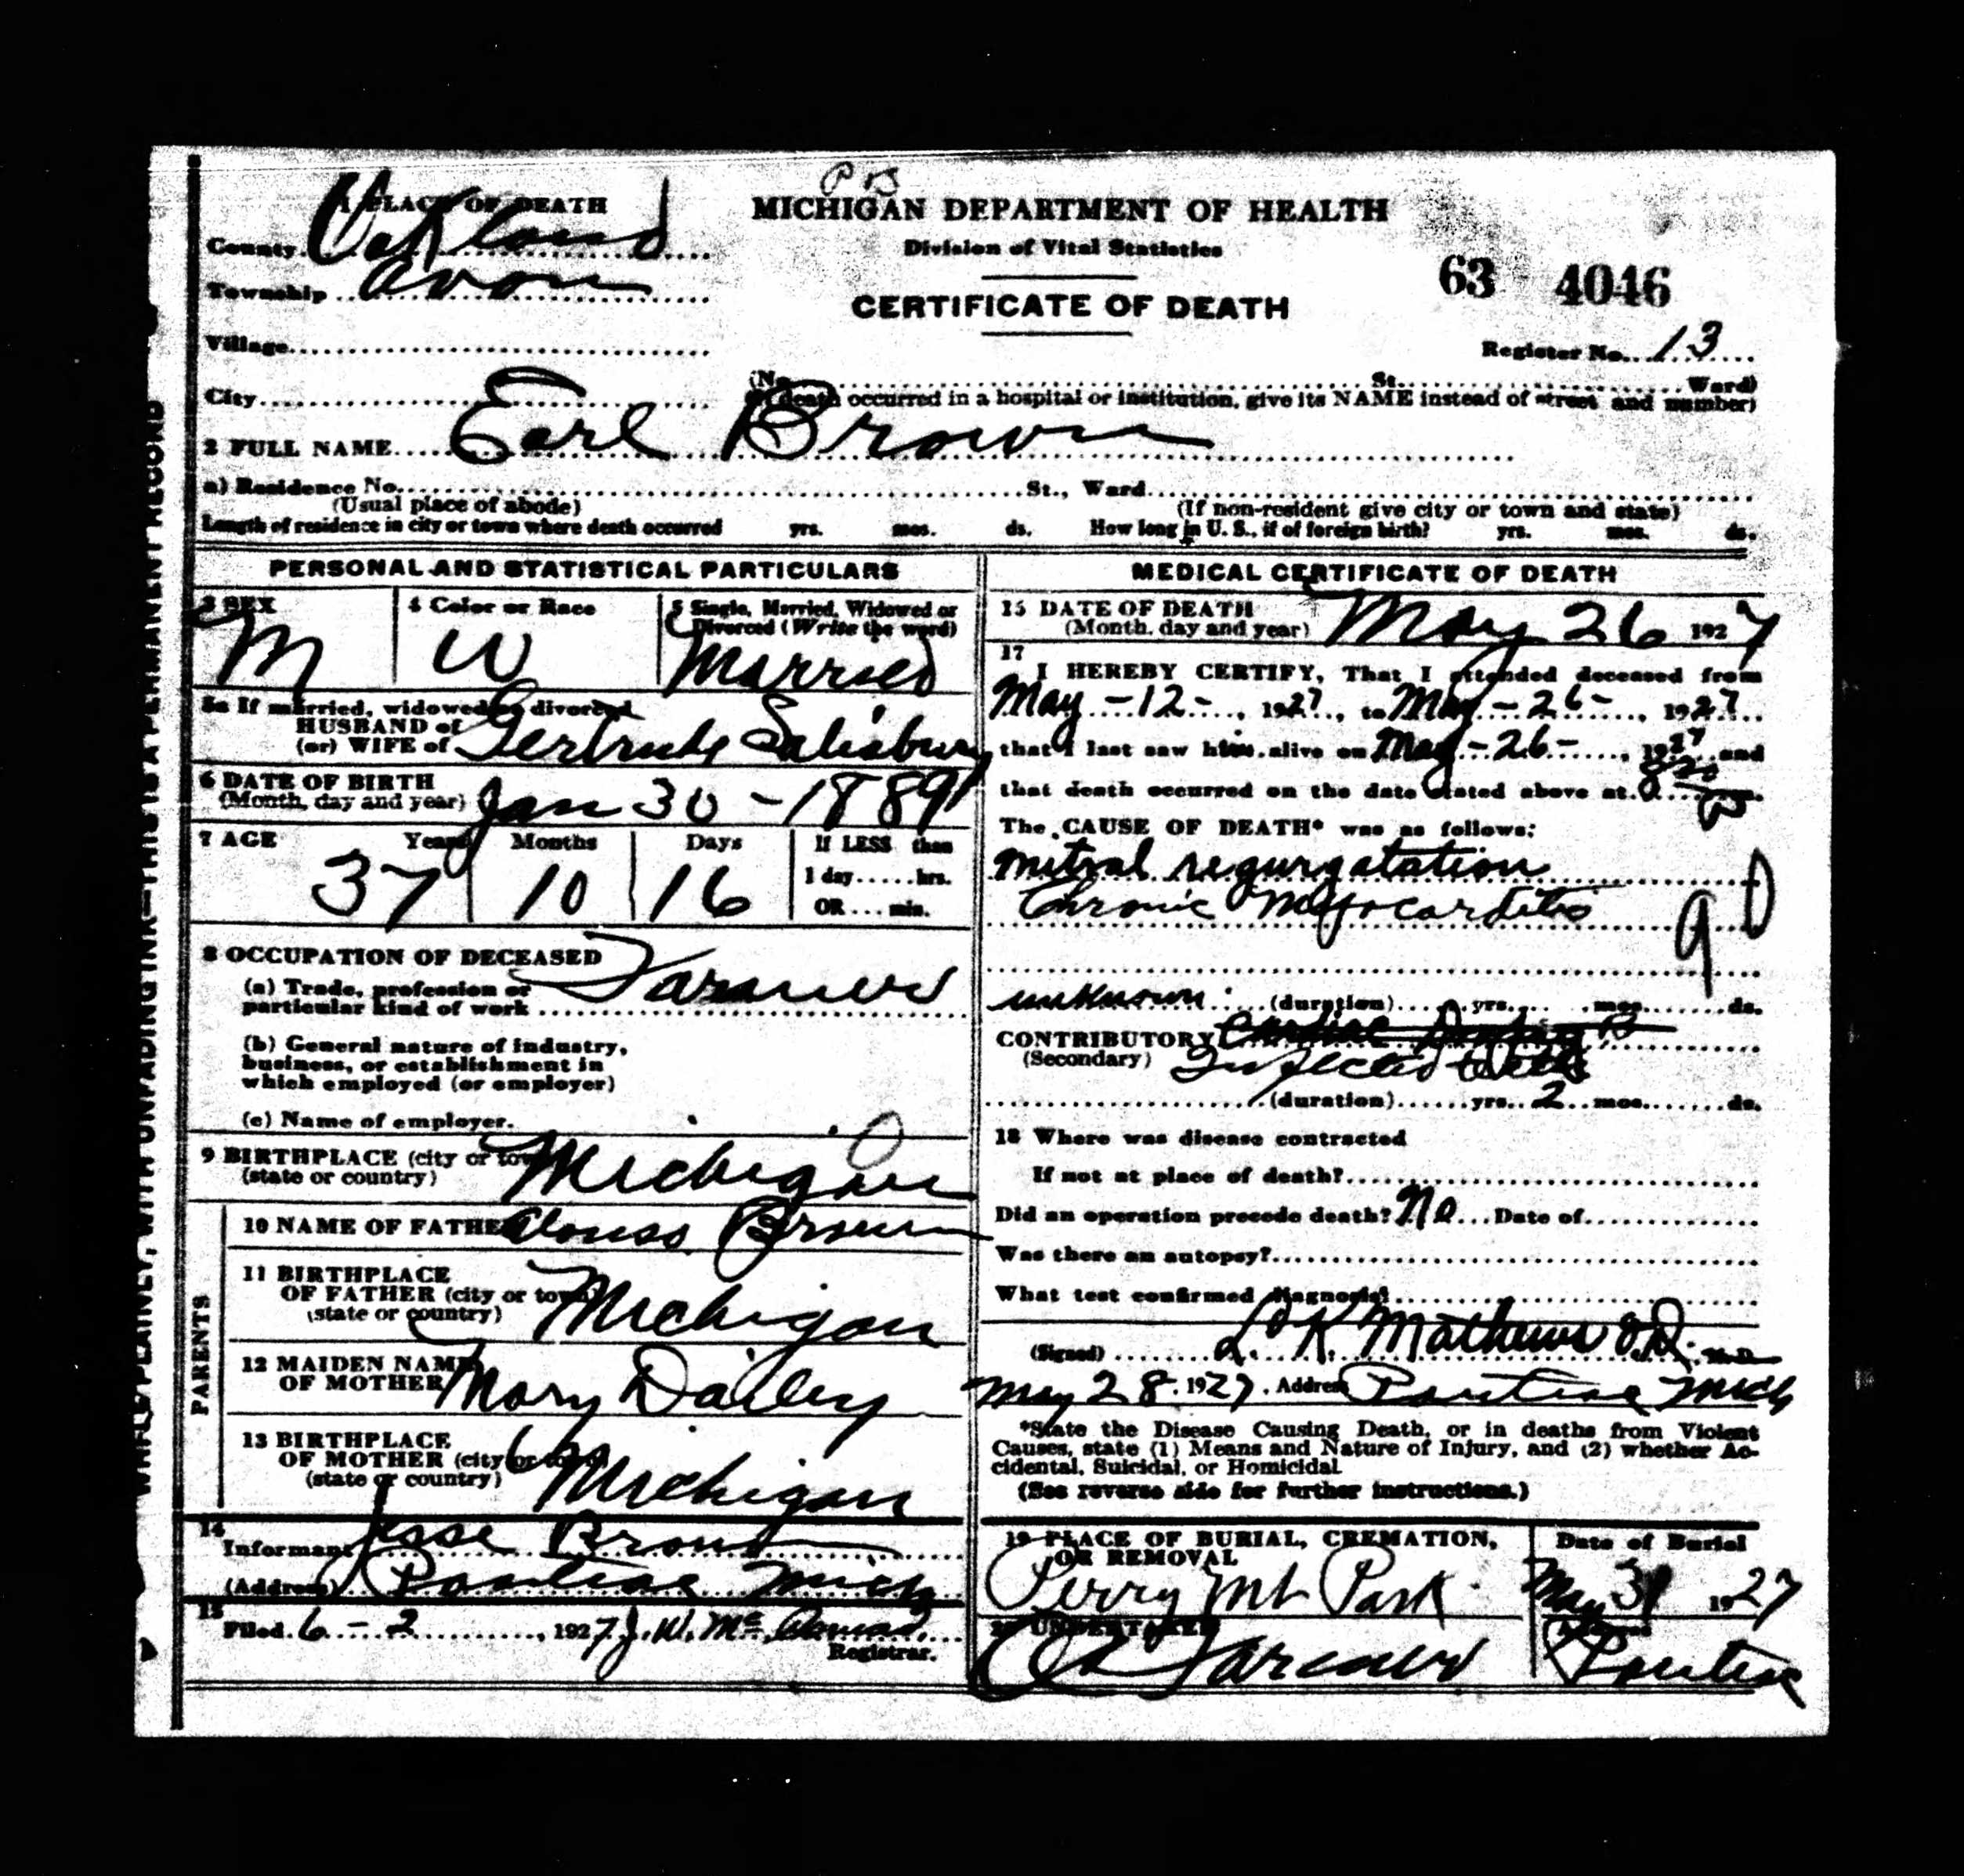 P B
1 PLACE OF DEATH
MICHIGAN DEPARTMENT OF HEALTH
County Oakland
Division of Vital Statistics
Township Avon
63 4046
CERTIFICATE OF DEATH
Village
Register No. 13
City
(No. St. Ward)
(If death occurred in a hospital or institution, give its NAME instead of street and number)
2 FULL NAME Earl Brown
a) Residence No. St., Ward
(Usual place of abode) (If non-resident give city or town and state)
Length of residence in city or town where death occurred yrs. mos. ds. How long in U. S., if of foreign birth? yrs. mos. ds.
PERSONAL AND STATISTICAL PARTICULARS
3 SEX 4 Color or Race 5 Single, Married, Widowed or
Divorced (Write the word)
M W Married
5a If married, widowed or divorced
HUSBAND of
(or) WIFE of Gertrude Salisbury
6 DATE OF BIRTH
(Month, day and year) Jan 30 - 1889
7 AGE Years Months Days If LESS than
1 day......hrs.
OR....min.
37 10 16
8 OCCUPATION OF DECEASED
(a) Trade, profession or
particular kind of work Farmer
(b) General nature of industry,
business, or establishment in
which employed (or employer)
(c) Name of employer.
9 BIRTHPLACE (city or town)
(state or country) Michigan
PARENTS
10 NAME OF FATHER Brown
11 BIRTHPLACE
OF FATHER (city or town)
(state or country) Michigan
12 MAIDEN NAME
OF MOTHER Mary Dailey
13 BIRTHPLACE
OF MOTHER (city or town)
(state or country) Michigan
14
Informant Jesse Brown
(Address) Pontiac Mich
15
Filed 6-2, 1927 J. W. Mc
Registrar.
MEDICAL CERTIFICATE OF DEATH
15 DATE OF DEATH
(Month, day and year) May 26 1927
17
I HEREBY CERTIFY, That I attended deceased from
May-12-, 1927, to May-26-, 1927
that I last saw him alive on May-26-, 1927 and
that death occurred on the date stated above at
The CAUSE OF DEATH* was as follows:
mitral regurgatation
Chronic Myocarditis
90
unknown (duration) yrs. mos. ds.
CONTRIBUTORY
(Secondary) Infected teeth
(duration) yrs. 2 mos. ds.
18 Where was disease contracted
If not at place of death?
Did an operation precede death? No Date of
Was there an autopsy?
What test confirmed diagnosis?
(Signed) L. K. Mathews M.D.
May 28, 1927. Address Pontiac Mich
*State the Disease Causing Death, or in deaths from Violent
Causes, state (1) Means and Nature of Injury, and (2) whether Ac-
cidental, Suicidal, or Homicidal
(See reverse side for further instructions.)
19 PLACE OF BURIAL, CREMATION, Date of Burial
OR REMOVAL
Perry Mt Park May 31 1927
20 UNDERTAKER
Farmer Pontiac